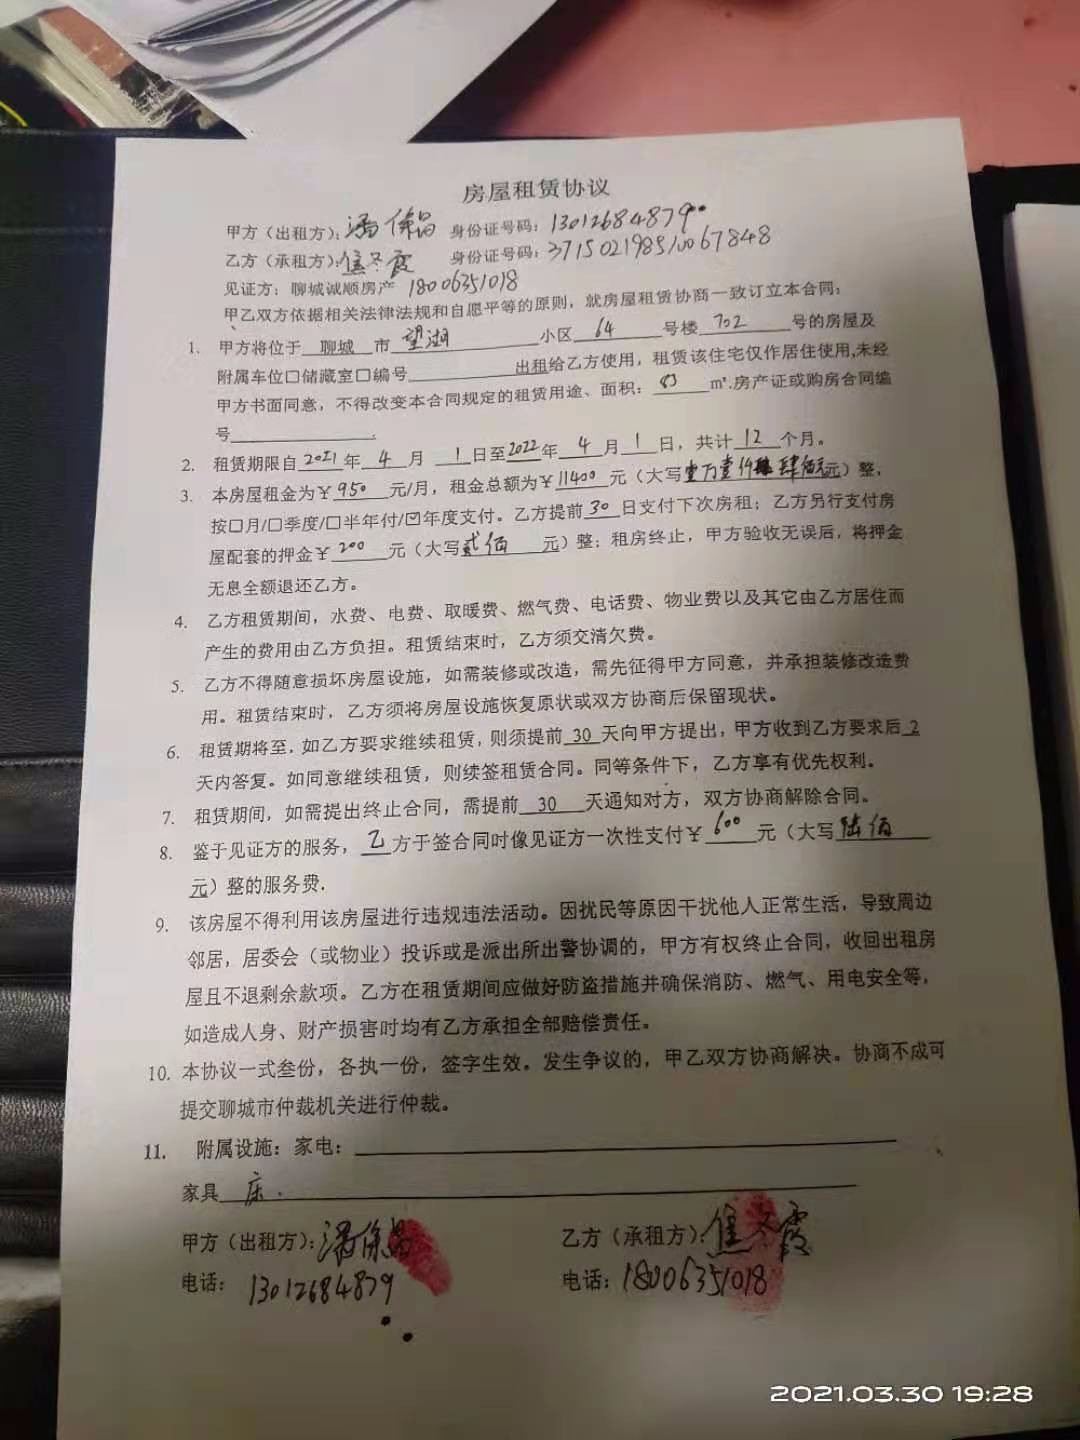 房屋租赁协议
甲方（出租方）：潘 身份证号码：13012684879
乙方（承租方）：焦冬霞 身份证号码：371502198510067848
见证方：聊城诚顺房产 18006351018
甲乙双方依据相关法律法规和自愿平等的原则，就房屋租赁协商一致订立本合同：
1. 甲方将位于 聊城 市 望湖 小区 64 号楼 702 号的房屋及
附属车位□储藏室□编号 出租给乙方使用，租赁该住宅仅作居住使用,未经
甲方书面同意，不得改变本合同规定的租赁用途、面积： 83 ㎡.房产证或购房合同编
号 .
2. 租赁期限自 2021 年 4 月 1 日至 2022 年 4 月 1 日，共计 12 个月。
3. 本房屋租金为￥ 950 元/月，租金总额为￥ 11400 元（大写 壹万壹仟肆佰元 元）整，
按□月/□季度/□半年付/☑年度支付。乙方提前 30 日支付下次房租；乙方另行支付房
屋配套的押金￥ 200 元（大写 贰佰 元）整；租房终止，甲方验收无误后，将押金
无息全额退还乙方。
4. 乙方租赁期间，水费、电费、取暖费、燃气费、电话费、物业费以及其它由乙方居住而
产生的费用由乙方负担。租赁结束时，乙方须交清欠费。
5. 乙方不得随意损坏房屋设施，如需装修或改造，需先征得甲方同意，并承担装修改造费
用。租赁结束时，乙方须将房屋设施恢复原状或双方协商后保留现状。
6. 租赁期将至，如乙方要求继续租赁，则须提前 30 天向甲方提出，甲方收到乙方要求后 2
天内答复。如同意继续租赁，则续签租赁合同。同等条件下，乙方享有优先权利。
7. 租赁期间，如需提出终止合同，需提前 30 天通知对方，双方协商解除合同。
8. 鉴于见证方的服务， 乙 方于签合同时像见证方一次性支付￥ 600 元（大写 陆佰
元）整的服务费.
9. 该房屋不得利用该房屋进行违规违法活动。因扰民等原因干扰他人正常生活，导致周边
邻居，居委会（或物业）投诉或是派出所出警协调的，甲方有权终止合同，收回出租房
屋且不退剩余款项。乙方在租赁期间应做好防盗措施并确保消防、燃气、用电安全等，
如造成人身、财产损害时均有乙方承担全部赔偿责任。
10. 本协议一式叁份，各执一份，签字生效。发生争议的，甲乙双方协商解决。协商不成可
提交聊城市仲裁机关进行仲裁。
11. 附属设施：家电：
家具 床.
甲方（出租方）：潘 乙方（承租方）：焦冬霞
电话：13012684879 电话：18006351018
2021.03.30 19:28